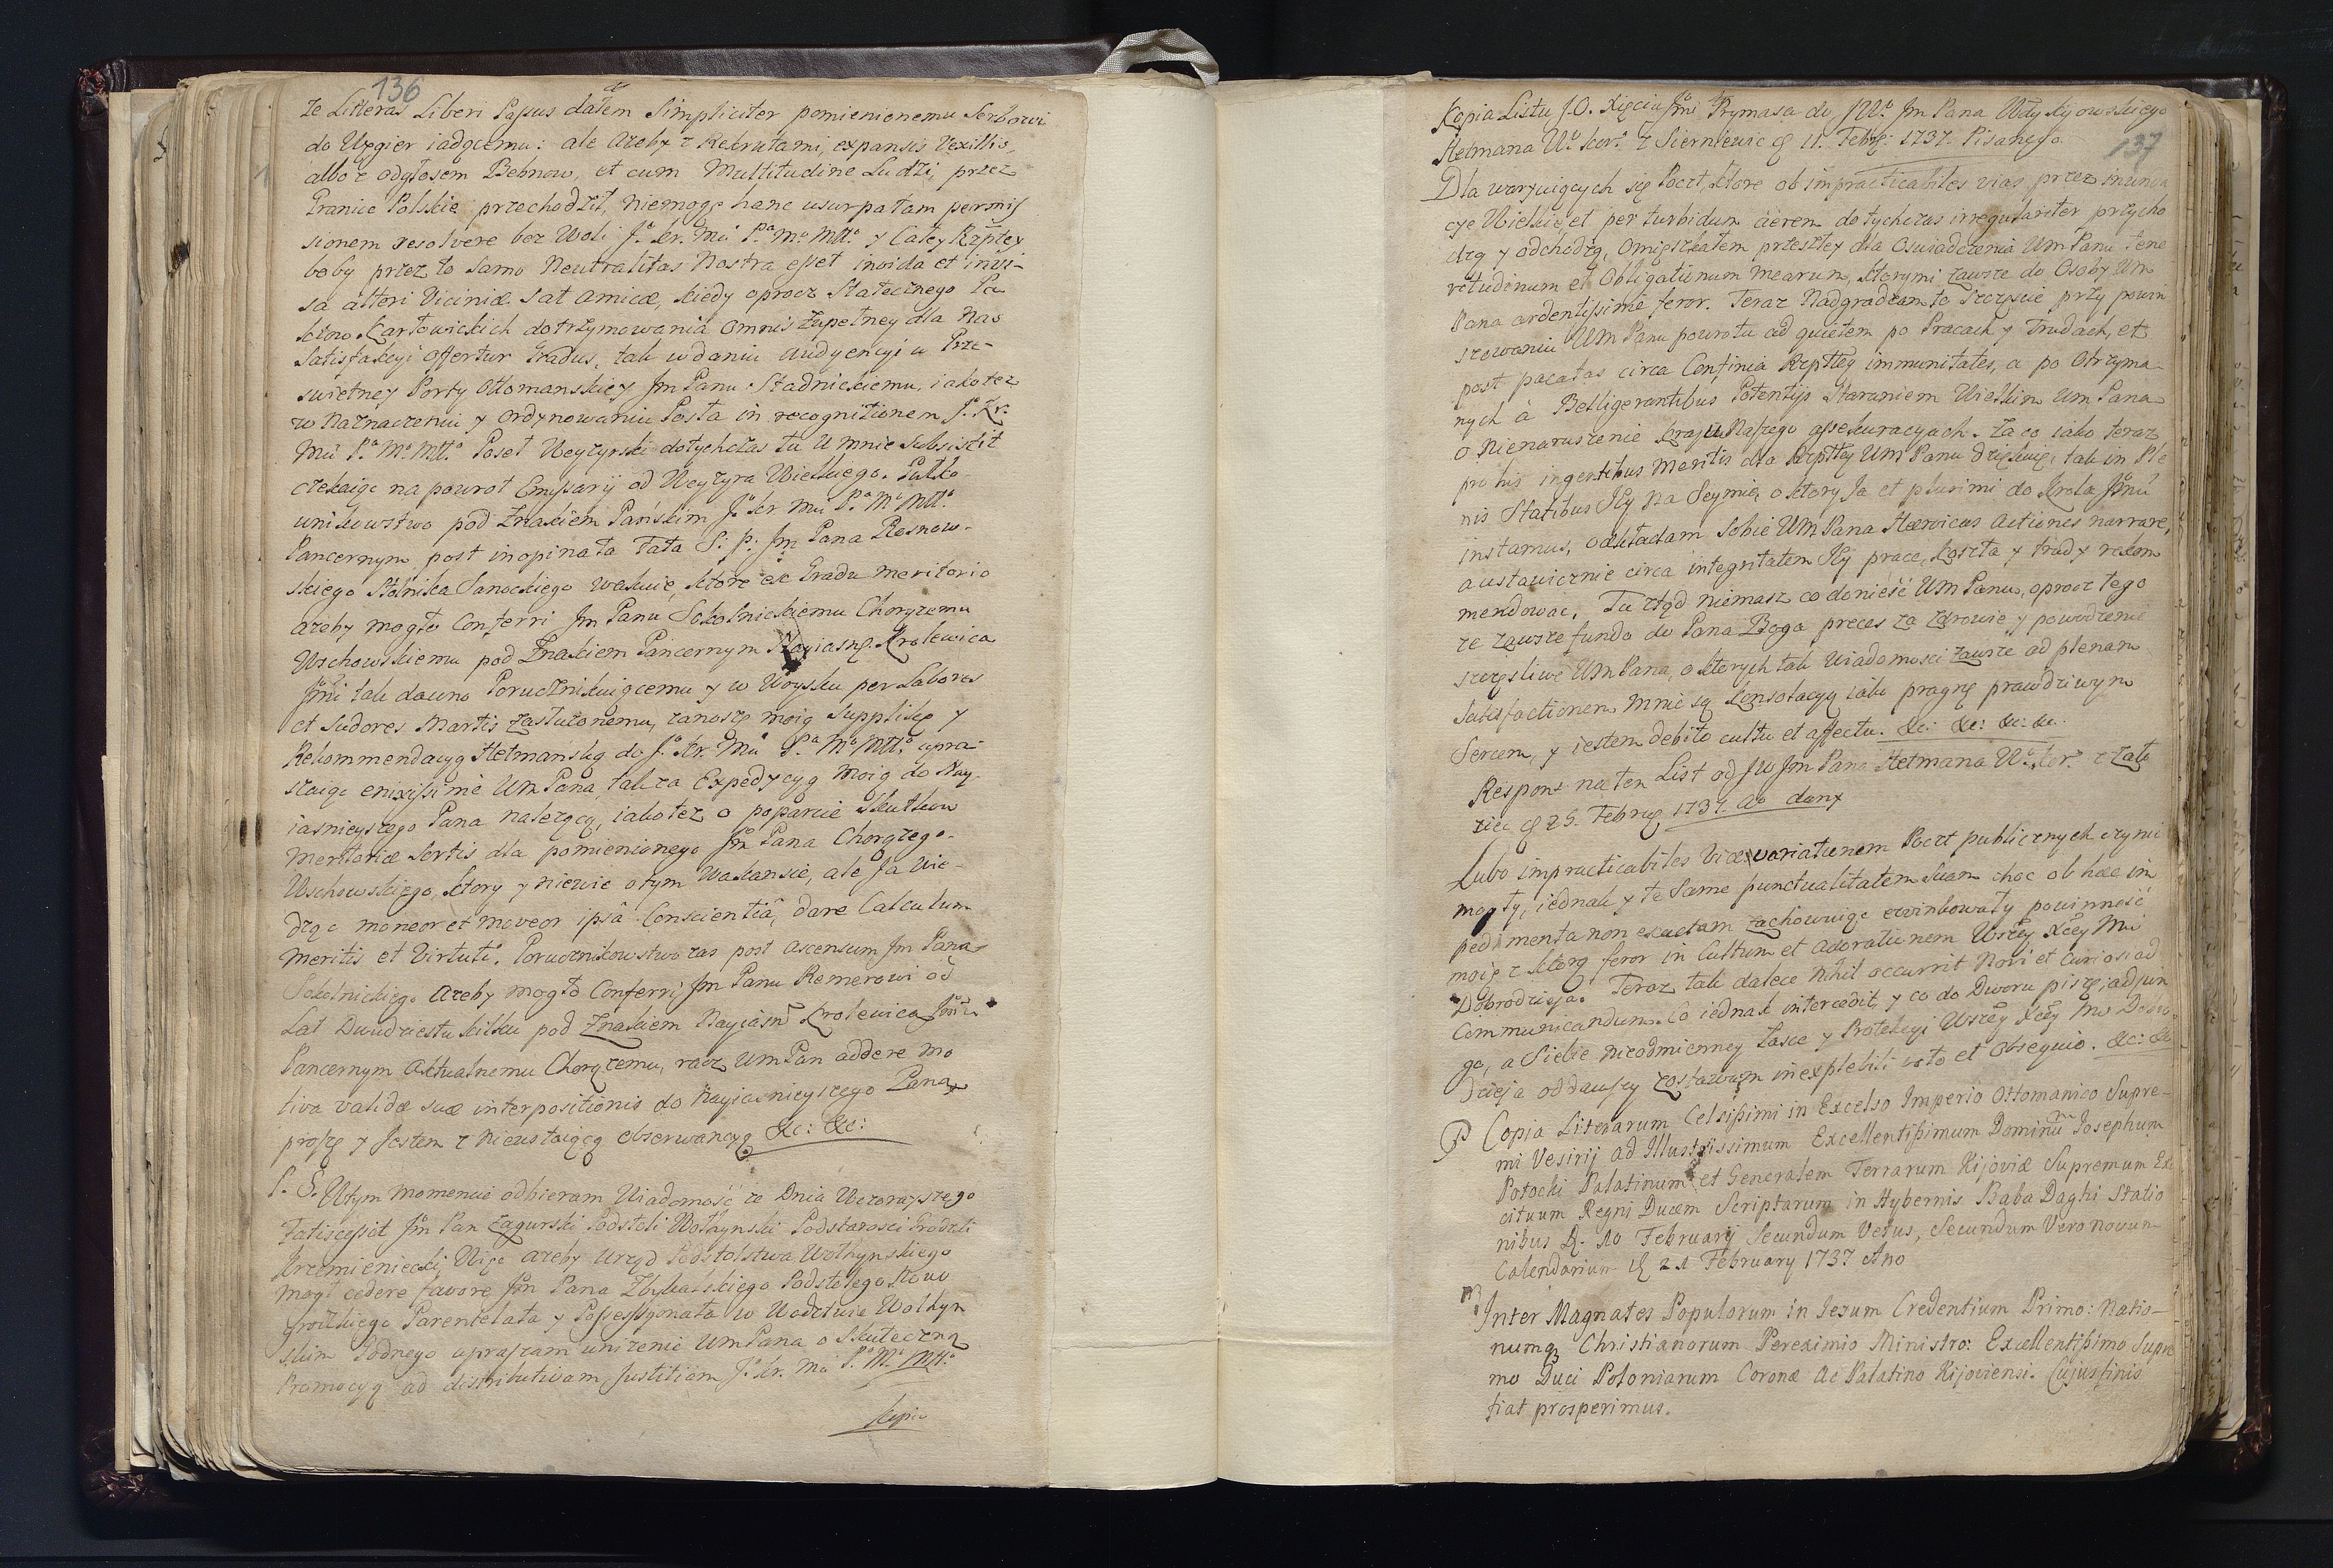 136
ze Litteras Liberi Passus dałem Simpliciter pomienionemu Serbowi
do Węgier iadącemu: ale ażeby z Rekrutami, expansis Vexillis,
albo z odgłosem Bębnow, et cum Multitudine Ludzi, przez
Granice Polskie przechodził, niemogę hanc usurpatam permis
sionem resolvere bez Woli J.º Kr. Mći P.ª M.º Mttº y Całey Rzptey
boby przez to samo Neutralitas Nostra esset invida et invi-
sa alteri Viciniæ sat amicæ, kiedy oprocz Statecznego Pa
ktow Karłowickich dotrzymowania omnis zupełney dla nas
Satisfakcyi offertur Gradus, tak w daniu Audyencyi u Prze-
swietney Porty Ottomanskiey Jm Panu Stadnickiemu, iako też
w Naznaczeniu y Ordynowaniu Posła in recognitionem J.º Kr.
Mći P.ª M.º Mttº Poseł Wezyrski dotychczas tu U mnie Subsistit
czekaiąc na powrot Emissarij od Wezyra Wielkiego. Pułko
wnikowstwo pod Znakiem Pańskim J.º Kr Mći P.ª M.º Mttº
Pancernym post inopinata Fata Ś. p. Jm Pana Rosnow-
skiego Stolnika Sanockiego wakuie, ktore ex Gradu meritorio
ażeby mogło Conferri Jm Panu Sokolnickiemu Chorążemu
Wschowskiemu pod Znakiem Pancernym Nayiasn. Krolewica
Jmći tak dawno Porucznikuiącemu y w Woysku per Labores
et Sudores Martis zasłużonemu, zanoszę moią Supplikę y
Rekommendacyą Hetmanską do J.º Kr. Mći P.ª M.º Mttº upra-
szaiąc enixissime Um Pana, tak za Expedycyą Moią do Nay-
iasnieyszego Pana należącą, iako też o poparcie Skutkow
Meritoriæ Sortis dla pomienionego Jm Pana Chorążego
Wschowskiego, ktory y niewie o tym Wakansie, ale Ja Wie-
dząc moneor et moveor ipsâ Conscientiâ, dare Calculum
Meritis et Virtuti. Porucznikowstwo zas post ascensum Jm Pana
Sokolnickiego ażeby mogło Conferri Jm Panu Remerowi od
Lat Dwudziestu kilku pod Znakiem Nayiasn Krolewica Jmći
Pancernym Aktualnemu Chorążemu, racz Um Pan addere mo
tiva validæ suæ interpositionis do Nayiasnieyszego Pana
proszę y Jestem z nieustaiącą obserwancyą &c: &c:
P. S. W tym momencie odbieram Wiadomość że Dnia Wczorayszego
Fatiscessit Jm Pan Zagurski Podstoli Wołhynski Podstarosci Grodzki
Krzemieniecki, Więc ażeby Urząd Podstolstwa Wołhynskiego
mogł cedere favore Jm Pana Zbykalskiego Podstolego Nowo
grodzkiego Parentelata y Possessyonata w Wodztwie Wołhyn
skim Godnego upraszam uniżenie Um Pana o Skuteczną
Promocyą ad distributivam Justitiam J.º Kr. Mći P.ª M.º Mttº
Kopia
Kopia Listu J.O. Xięcia Jmći Prymasa do JWº Jm Pana
Hetmana Wº Korº z Skierniewic D 11. Febrij 1737. Pisanego
137
Dla waryuiących się Poczt, ktore ob impracticabiles vias przez inunda
cye Wielkie, et per turbidum aërem dotychczas irregulariter przycho
dzą y odchodzą, omięszkałem przeszłey dla Oswiadczenia Um Panu Tene
ritudinum et Obligationum mearum, ktorymi zawsze do Osoby Um
Pana ardentissime feror. Teraz Nadgradzam to Szczęscie przy powin
szowaniu Um Panu powrotu ad quietem po Pracach y Trudach, et
post pacatas circa Confinia Rzptey immunitates, a po Otrzyma-
nych à Belligerantibus Potentijs Staraniem Wielkim Um Pana
o Nienaruszenie Kraju Naszego assekuracyach. Za co iako teraz
pro his ingentibus Meritis dla Rzptey Um Panu dziękuię, tak in Ple
nis Statibus Jey na Seymie, o ktory Ja et plurimi do Krola Jmći
instamus, odkładam Sobie Um Pana Heroicas Actiones narrare,
a ustawicznie circa integritatem Jey prace, koszta y trudy rekom
mendować. Tu ztąd niemasz co donieść Um Panu, oprocz tego
że zawsze fundo do Pana Boga preces za Zdrowie y powodzenie
szczęsliwe Um Pana, o ktorych tak Wiadomosci zawsze ad plenam
Satisfactionem mnie są Konsolacyą iako pragnę prawdziwym
Sercem, y iestem debito cultu et affectu. &c: &c: &c: &c.
Respons na ten List od JW Jm Pana Hetmana Wº Korº z Zało
ziec D 25. Februarij 1737. Aº dany
Lubo impracticabiles Viæ variationem Poczt publicznych czynić
mogły, iednak y te Same punctualitatem Suam choc ob hæc im
pedimenta non exactam zachowuiąc ewinkowały powinność
moię z ktorą feror in Cultum et adorationem Wszey Xcey Mći
Dobrodzieja. Teraz tak dalece Nihil occurrit Novi et Curiosi ad
Communicandum. Co iednak intercedit, y co do Dworu piszę, adjun
go, a Siebie nieodmienney Łasce y Protekcyi Wszey Xcey Mći Dobro
dzieja oddawszy zostawam inexplebili voto et obsequio. &c: &c
Copia Literarum Celsissimi in Excelso Imperio Ottomanico Supre-
mi Vesirij ad Illustrissimum Excellentissimum Dominū Josephum
Potocki Palatinum et Generalem Terrarum Kijoviæ Supremum Exer
cituum Regni Ducem Scriptarum in Hybernis Baba Daghi Statio
nibus D. 10 Februarij Secundum Vetus, Secundum Vero novum
Calendarium D 21 February 1737 Ano
Inter Magnates Populorum in Jesum Credentium Primo: Natio-
numq3 Christianorum Pereximio Ministro: Excellentissimo Supre
mo Duci Poloniarum Coronæ Ac Palatino Kijoviensi. Cujus finis
fiat prosperimus.